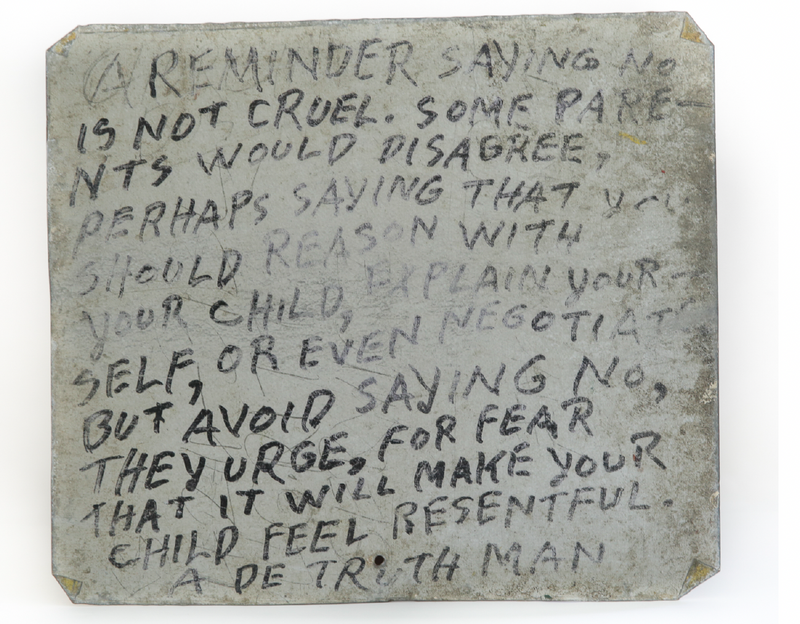 A REMINDER SAYING NO
IS NOT CRUEL. SOME PARE-
NTS WOULD DISAGREE,
PERHAPS SAYING THAT you
SHOULD REASON WITH
YOUR CHILD, EXPLAIN YOUR-
SELF, OR EVEN NEGOTIAT
BUT AVOID SAYING NO,
THEY URGE, FOR FEAR
THAT IT WILL MAKE YOUR
CHILD FEEL RESENTFUL.
A DE TRUTH MAN